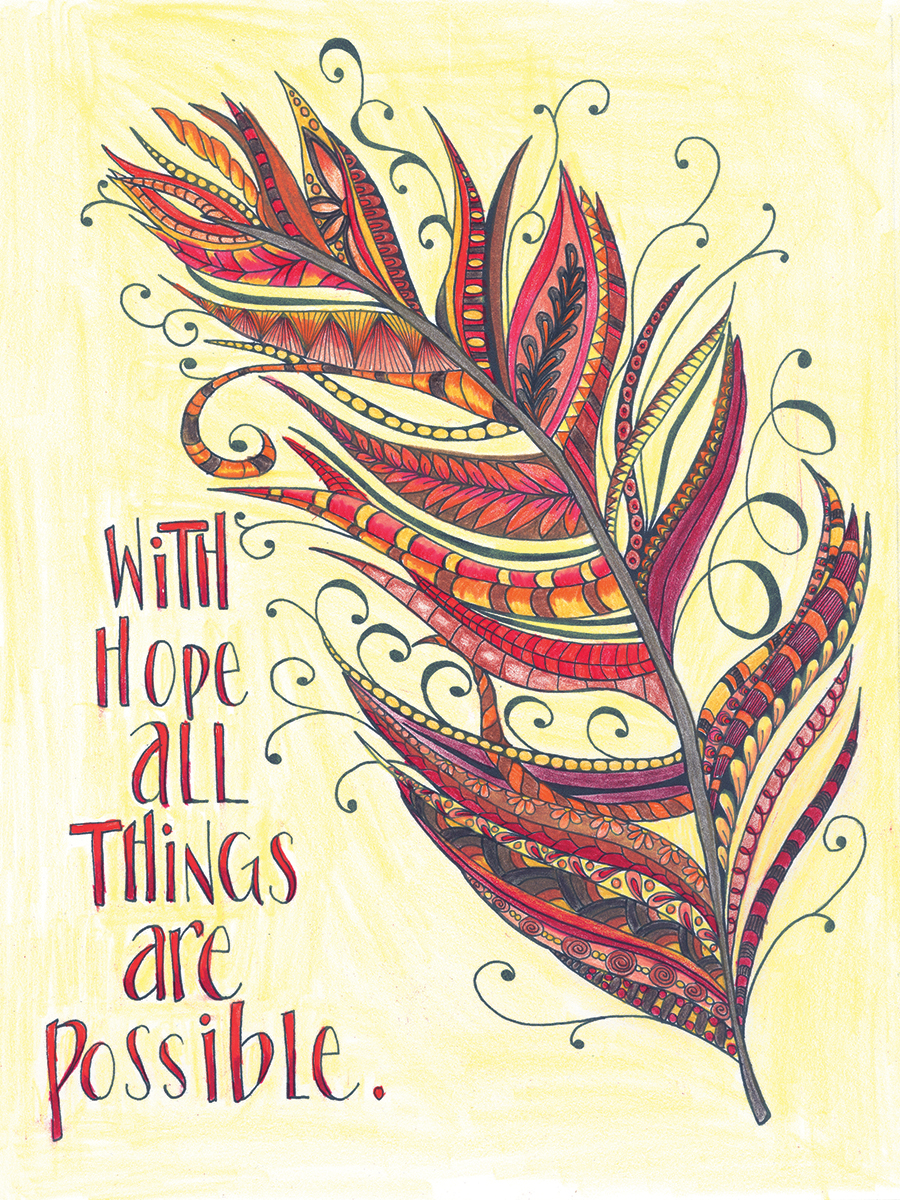 WiTH
Hope
aLL
THiNGS
are
possibLe.